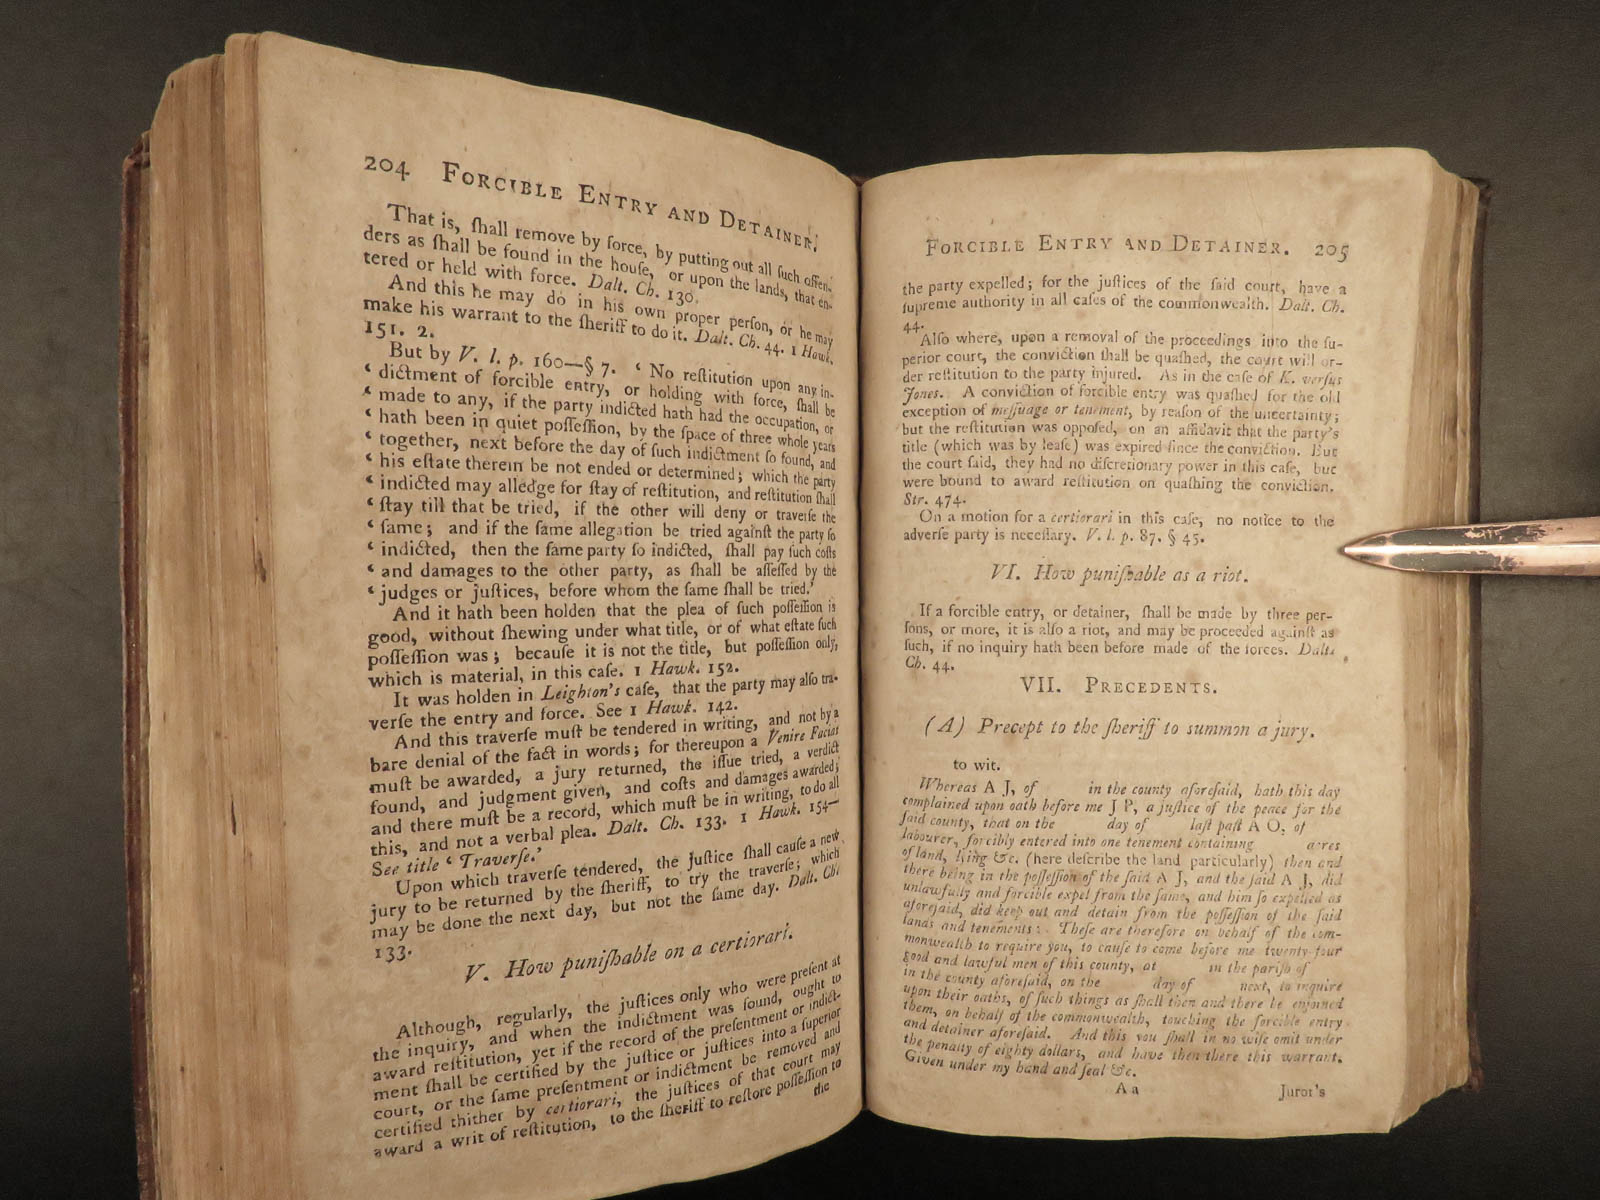 204 FORCIBLE ENTRY AND DETAINER.
That is, ſhall remove by force, by putting out all ſuch offen-
ders as ſhall be found in the houſe, or upon the lands, that en-
tered or held with force. Dalt. Ch. 130.
And this he may do in his own proper perſon, or he may
make his warrant to the ſheriff to do it. Dalt. Ch. 44. 1 Hawk.
151. 2.
But by V. l. p. 160—§ 7. ‘ No reſtitution upon any in-
‘ dictment of forcible entry, or holding with force, ſhall be
‘ made to any, if the party indicted hath had the occupation, or
‘ hath been in quiet poſſeſſion, by the ſpace of three whole years
‘ together, next before the day of ſuch indictment ſo found, and
‘ his eſtate therein be not ended or determined; which the party
‘ indicted may alledge for ſtay of reſtitution, and reſtitution ſhall
‘ ſtay till that be tried, if the other will deny or traverſe the
‘ ſame; and if the ſame allegation be tried againſt the party ſo
‘ indicted, then the ſame party ſo indicted, ſhall pay ſuch coſts
‘ and damages to the other party, as ſhall be aſſeſſed by the
‘ judges or juſtices, before whom the ſame ſhall be tried.’
And it hath been holden that the plea of ſuch poſſeſſion is
good, without ſhewing under what title, or of what eſtate ſuch
poſſeſſion was; becauſe it is not the title, but poſſeſſion only,
which is material, in this caſe. 1 Hawk. 152.
It was holden in Leighton's caſe, that the party may alſo tra-
verſe the entry and force. See 1 Hawk. 142.
And this traverſe muſt be tendered in writing, and not by a
bare denial of the fact in words; for thereupon a Venire Facias
muſt be awarded, a jury returned, the iſſue tried, a verdict
found, and judgment given, and coſts and damages awarded;
and there muſt be a record, which muſt be in writing, to do all
this, and not a verbal plea. Dalt. Ch. 133. 1 Hawk. 154—
See title ‘ Traverſe.’
Upon which traverſe tendered, the juſtice ſhall cauſe a new
jury to be returned by the ſheriff, to try the traverſe; which
may be done the next day, but not the ſame day. Dalt. Ch.
133.
V. How puniſhable on a certiorari.
Although, regularly, the juſtices only who were preſent at
the inquiry, and when the indictment was found, ought to
award reſtitution, yet if the record of the preſentment or indict-
ment ſhall be certified by the juſtice or juſtices into a ſuperior
court, or the ſame preſentment or indictment be removed and
certified thither by certiorari, the juſtices of that court may
award a writ of reſtitution, to the ſheriff to reſtore poſſeſſion to
the
FORCIBLE ENTRY AND DETAINER. 205
the party expelled; for the juſtices of the ſaid court, have a
ſupreme authority in all caſes of the commonwealth. Dalt. Ch.
44.
Alſo where, upon a removal of the proceedings into the ſu-
perior court, the conviction ſhall be quaſhed, the court will or-
der reſtitution to the party injured. As in the caſe of K. verſus
Jones. A conviction of forcible entry was quaſhed for the old
exception of meſſuage or tenement, by reaſon of the uncertainty;
but the reſtitution was oppoſed, on an affidavit that the party's
title (which was by leaſe) was expired ſince the conviction. But
the court ſaid, they had no diſcretionary power in this caſe, but
were bound to award reſtitution on quaſhing the conviction.
Str. 474.
On a motion for a certiorari in this caſe, no notice to the
adverſe party is neceſſary. V. l. p. 87. § 45.
VI. How puniſhable as a riot.
If a forcible entry, or detainer, ſhall be made by three per-
ſons, or more, it is alſo a riot, and may be proceeded againſt as
ſuch, if no inquiry hath been before made of the forces. Dalt.
Ch. 44.
VII. PRECEDENTS.
(A) Precept to the ſheriff to summon a jury.
to wit.
Whereas A J, of in the county aforeſaid, hath this day
complained upon oath before me J P, a juſtice of the peace for the
ſaid county, that on the day of laſt paſt A O, of
labourer, forcibly entered into one tenement containing acres
of land, lying &c. (here deſcribe the land particularly) then and
there being in the poſſeſſion of the ſaid A J, and the ſaid A J, did
unlawfully and forcible expel from the ſame, and him ſo expelled as
aforeſaid, did keep out and detain from the poſſeſſion of the ſaid
lands and tenements: Theſe are therefore on behalf of the com-
monwealth to require you, to cauſe to come before me twenty-four
good and lawful men of this county, at in the pariſh of
in the county aforeſaid, on the day of next, to inquire
upon their oaths, of ſuch things as ſhall then and there be enjoined
them, on behalf of the commonwealth, touching the forcible entry
and detainer aforeſaid. And this you ſhall in no wiſe omit under
the penalty of eighty dollars, and have then there this warrant.
Given under my hand and ſeal &c.
A a Juror's